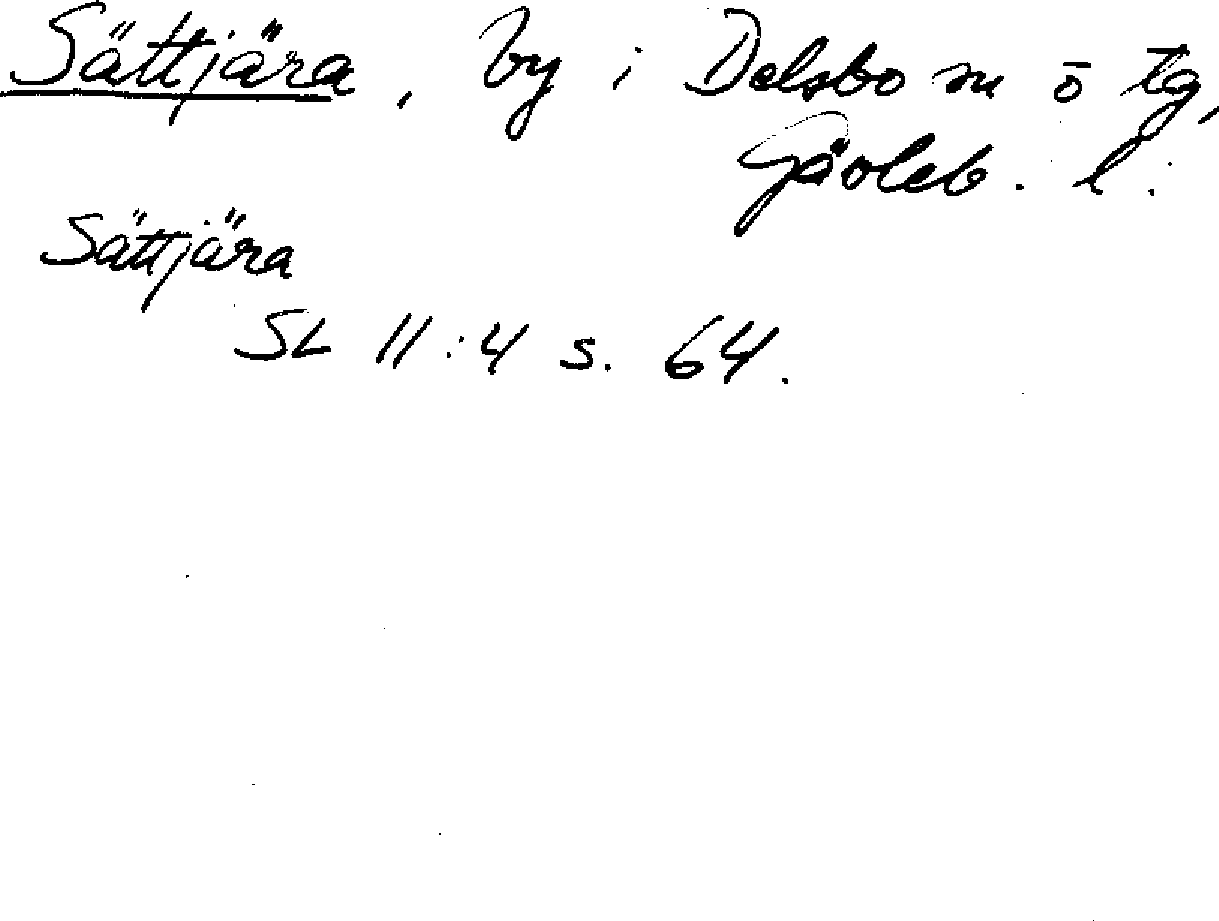 Sättjära, by i Delsbo sn ö tg,
Gävleb. l.
Sättjära
SL 11:4 s. 64.